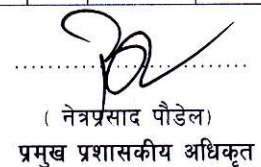 ( नेत्रप्रसाद पौडेल)
प्रमुख प्रशासकीय अधिकृत